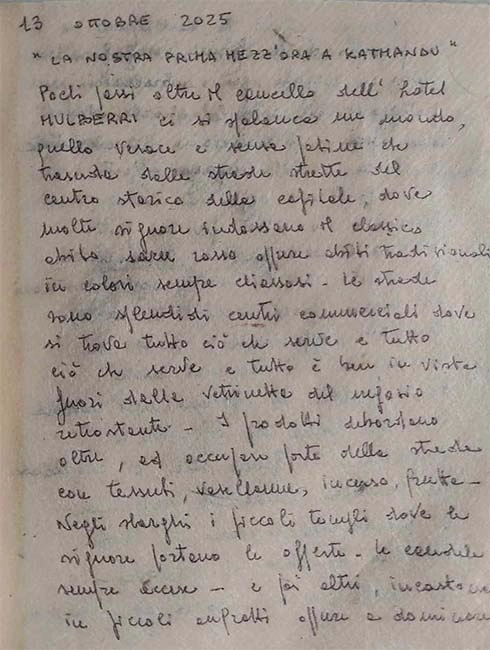 13 OTTOBRE 2025
"LA NOSTRA PRIMA MEZZ'ORA A KATHANDU"
Pochi passi oltre il cancello dell' hotel
MULBERRI ci si spalanca un mondo,
quello verace e senza patine che
trasuda dalle strade strette del
centro storico della capitale, dove
molte signore indossano il classico
abito saree rosso oppure abiti tradizionali
in colori sempre chiassosi - le strade
sono splendidi centri commerciali dove
si trova tutto ciò che serve e tutto
ciò che serve e tutto è ben in vista
fuori dalla vetrinetta del negozio
retrostante - I prodotti debordano
oltre, ad occupare parte della strada
con tessuti, vasellame, incenso, frutta -
Negli slarghi i piccoli templi dove le
signore portano le offerte - le candele
sempre accese - e poi altri,
in piccoli anfratti oppure a dominare